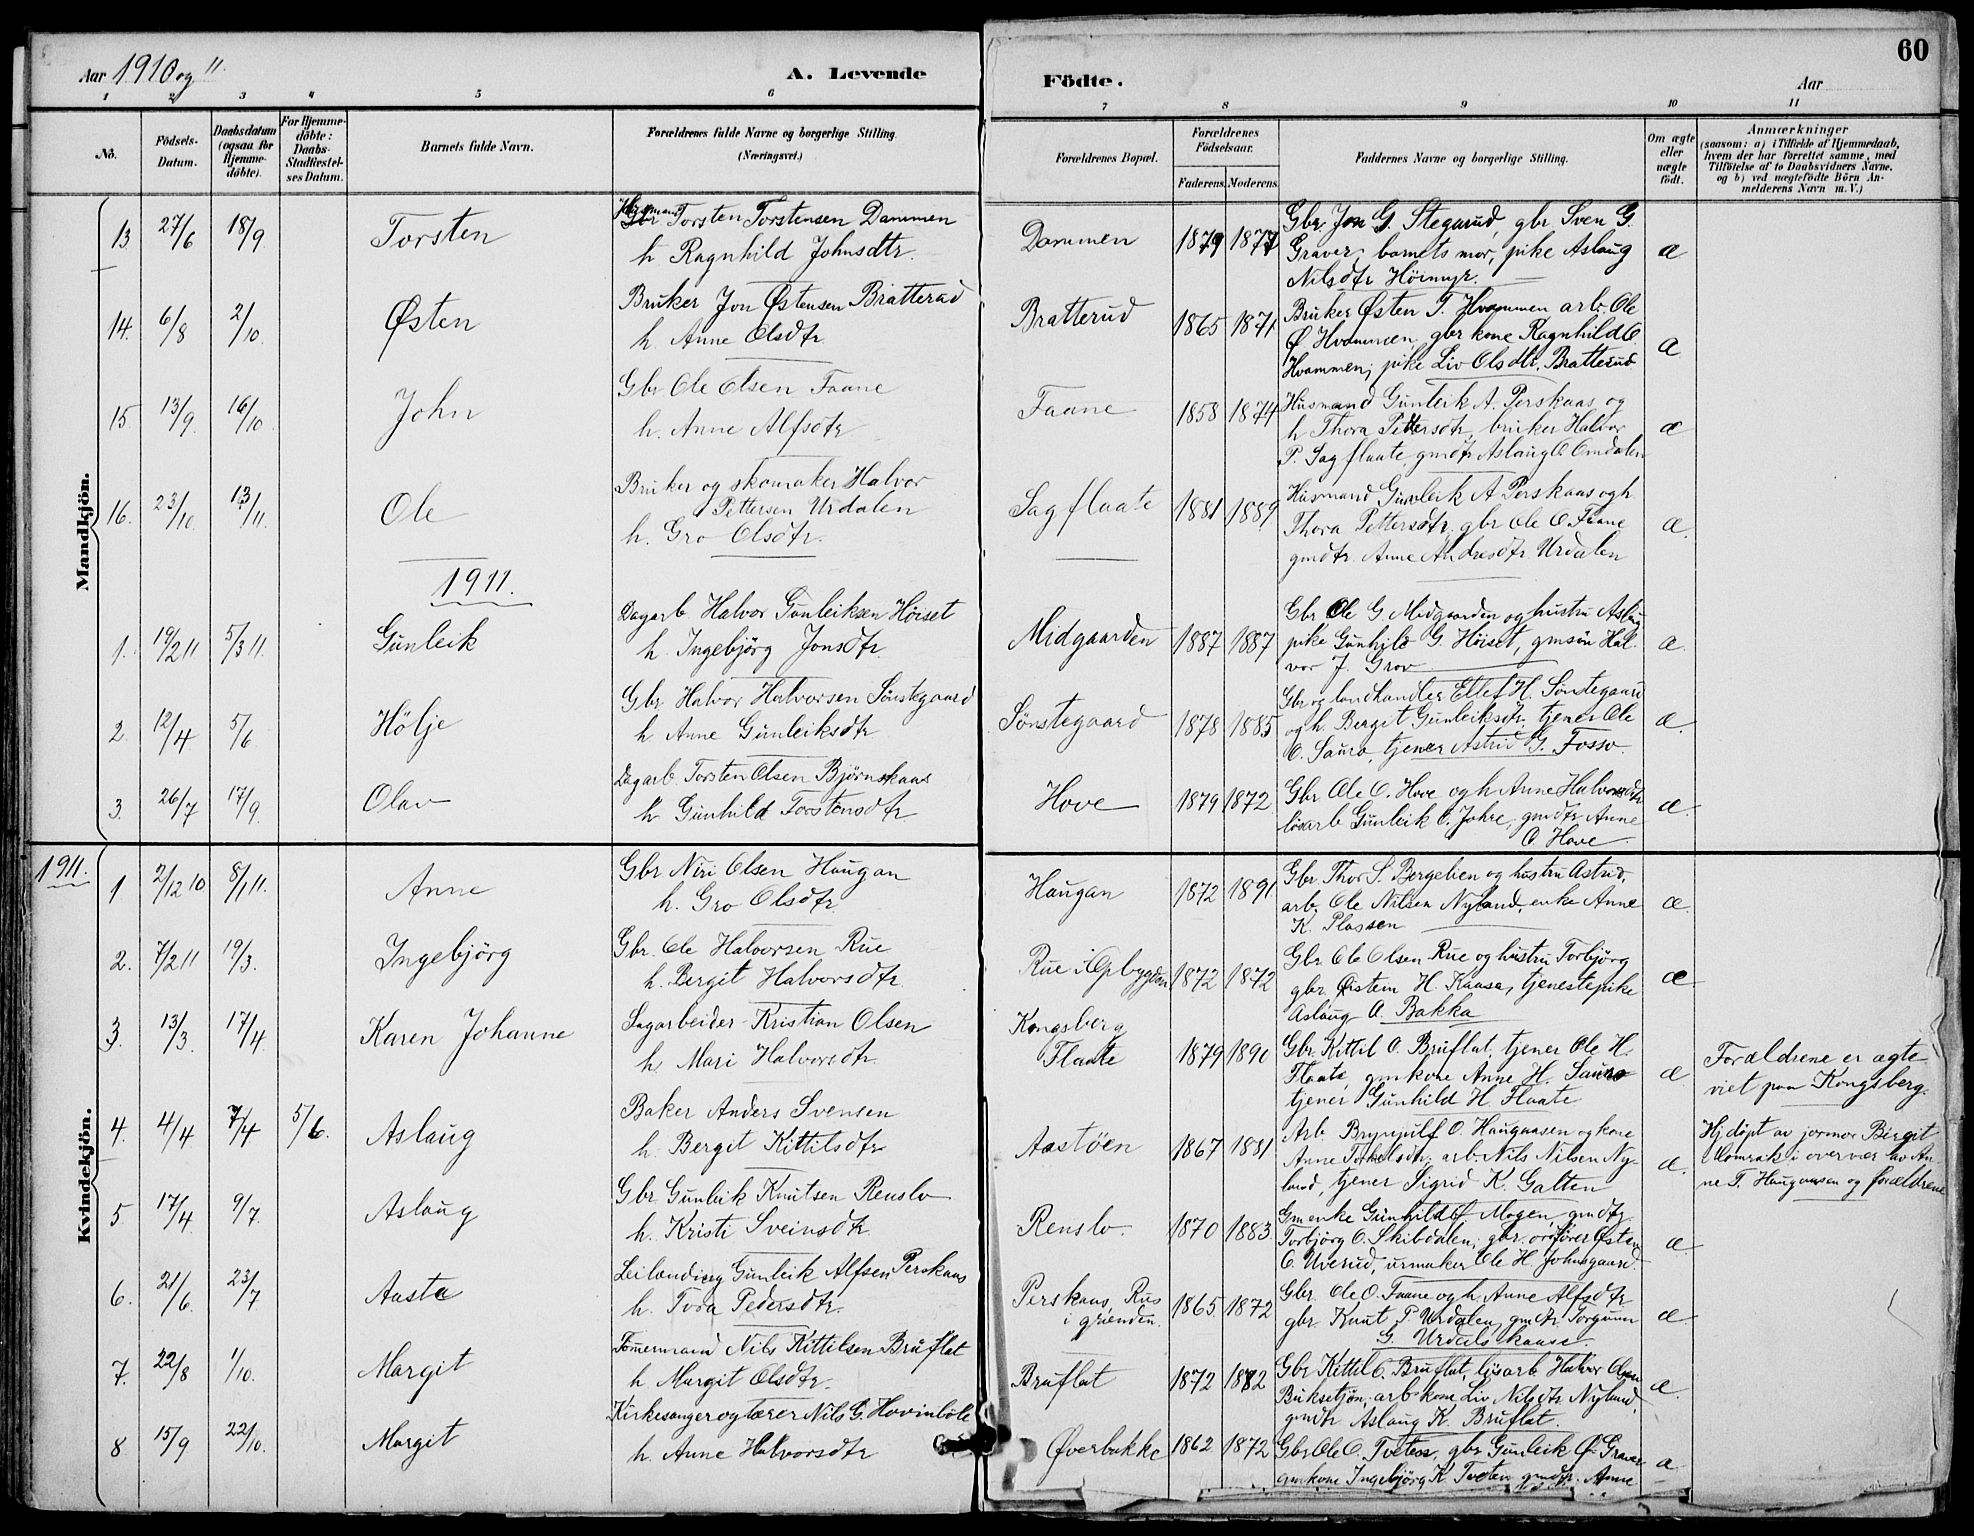 Aar 1910 og 11.
A. Levende
Födte.
Aar
60
1 2 3 4 5 6 7 8 9 10 11
No.
Födsels-
Datum.
Daabsdatum
(ogsaa for
Hjemme-
döbte).
For Hjemme-
döbte:
Daabs-
Stadfæstel-
ses Datum.
Barnets fulde Navn.
Forældrenes fulde Navne og borgerlige Stilling.
(Næringsvei.)
Forældrenes Bopæl.
Forældrenes
Födselsaar.
Faderens. Moderens.
Faddernes Navne og borgerlige Stilling.
Om ægte
eller
uægte
födt.
Anmærkninger
(saasom: a) i Tilfælde af Hjemmedaab,
hvem der har forrettet samme, med
Tilföielse af to Daabsvidners Navne,
og b) ved uægtefödte Börn An-
melderens Navn m. V.)
Mandkjön.
13 27/6 18/9 Torsten
Torsten Torstensen Dammen
h Ragnhild Johnsdtr.
Dammen 1879 1877
Gbr. Jon G. Stegarud, gbr. Sven G.
Graver, barnets mor, pike Aslaug
Nilsdtr Höimyr.
æ
14. 6/8 2/10. Østen
Bruker Jon Østensen Bratterud
h. Anne Olsdtr.
Bratterud 1865 1871
Bruker Østen T. Hvammen arb. Ole
Ø. Hvammen, gbr kone Ragnhild O
Hvammen, pike Liv Olsdtr. Bratterud
æ
15 13/9. 16/10 John
Gbr Ole Olsen Faane
h. Anne Alfsdtr
Faane 1858 1874
Husmand Gunleik A. Perskaas og
h Thora Pettersdtr, bruker Halvor
P. Sagflaate, gmdtr Aslaug O Omdalen
æ
16. 23/10. 13/11. Ole
Bruker og skomaker Halvor
Pettersen Urdalen
h. Gro Olsdtr.
Sagflaate 1881 1889
Husmand Gunleik A Perskaas og h.
Thora Pettersdtr, gbr Ole O. Faane
gmdtr. Anne Andresdtr Urdalen
æ.
1911.
1. 19/2 11 5/3 11. Gunleik
Dagarb. Halvor Gunleiksen Höiset
h. Ingebjörg Jonsdtr.
Midgaarden 1887 1887
Gbr Ole G. Midgaarden og hustru Aslaug
pike Gunhild G. Höiset, gmsön Hal-
vor J. Grov
æ.
2. 12/4 5/6. Hölje
Gbr Halvor Halvorsen Sönstegaard
h Anne Gunleiksdtr
Sönstegaard 1878 1885
Gbr og landhandler Ellef H. Sönstegaard
og h. Bergit Gunleiksdtr, tjener Ole
O. Sauro, tjener Astrid G. Fosso.
æ.
3. 26/7 17/9. Olav
Dagarb Torsten Olsen Björnskaas
h Gunhild Torstensdtr
Hove 1879 1872
Gbr Ole O. Hove og h Anne Halvorsdtr
lösarb Gunleik O. Johre, gmdtr Anne
O. Hove.
æ.
Kvindekjön.
1911.
1 2/12 10 8/1 11. Anne
Gbr Niri Olsen Haugan
h. Gro Olsdtr.
Haugan 1872 1891
Gbr. Thor S. Bergelien og hustru Astrid,
arb. Ole Nilsen Nyland, enke Anne
K. Plassen
æ.
2. 7/2 11 19/3. Ingebjörg
Gbr. Ole Halvorsen Rue
h. Bergit Halvorsdtr.
Rue i Opbygden 1872 1872
Gbr Ole Olsen Rue og hustru Torbjörg
gbr. Östein H. Kaasa, tjenestepike
Aslaug A. Bakka
æ
3. 13/3. 17/4. Karen Johanne
Sagarbeider Kristian Olsen
h. Mari Halvorsdtr.
Kongsberg
Flaate 1879 1890
Gbr. Kittil O. Bruflat, tjener Ole H.
Flaate, gmkone Anne H. Sauro
tjener Gunhild H. Flaate
æ.
Forældrene er ægte
viet paa Kongsberg.
4. 4/4 7/4 5/6. Aslaug
Baker Anders Svensen
h. Bergit Kittilsdtr
Aastöen 1867 1881
Arb. Brynjulf O. Haugaasen og kone
Anne Torkelsdtr, arb. Nils Nilsen Ny-
land, tjener Sigrid K. Galten
æ.
Hj. döpt av jormor Bergit
i overvær av An-
ne T. Haugaasen og forældrene
5 17/4. 9/7. Aslaug
Gbr Gunleik Knutsen Renslo
h. Kristi Sveinsdtr.
Renslo. 1870 1883
Gm enke Gunhild Mogen, gmdtr
Torbjörg O. Skibdalen, gbr. ordförer Østen
O. Uverud, urmaker Ole H. Johnsgaard.
æ
6. 21/6. 23/7 Aasta
Leilænding Gunleik Alfsen Perskaas
h. Tora Pedersdtr.
Perskaas, Rus
i grænden. 1865 1872
Gbr. Ole O. Faane og h. Anne Alfsdtr
gbr. Knut T. Urdalen, gmdtr Torgunn
G. Urdalskaase.
æ.
7. 22/8 1/10. Margit
Tömmermand Nils Kittilsen Bruflat
h Margit Olsdtr.
Bruflat 1872 1882
Gbr Kittil O. Bruflat, lösarb Halvor Olsen
Buksetjön, arb kone Liv Nilsdtr Nyland,
gmdtr Aslaug K. Bruflat.
æ.
8 15/9 22/10. Margit
Kirkesanger og lærer Nils G. Hovinböle
h. Anne Halvorsdtr
Øverbakke 1862 1872
Gbr Ole O. Tveten, gbr Gunleik Ø. Graver
gmkone Ingebjörg K. Tveten gmdtr. Anne
æ